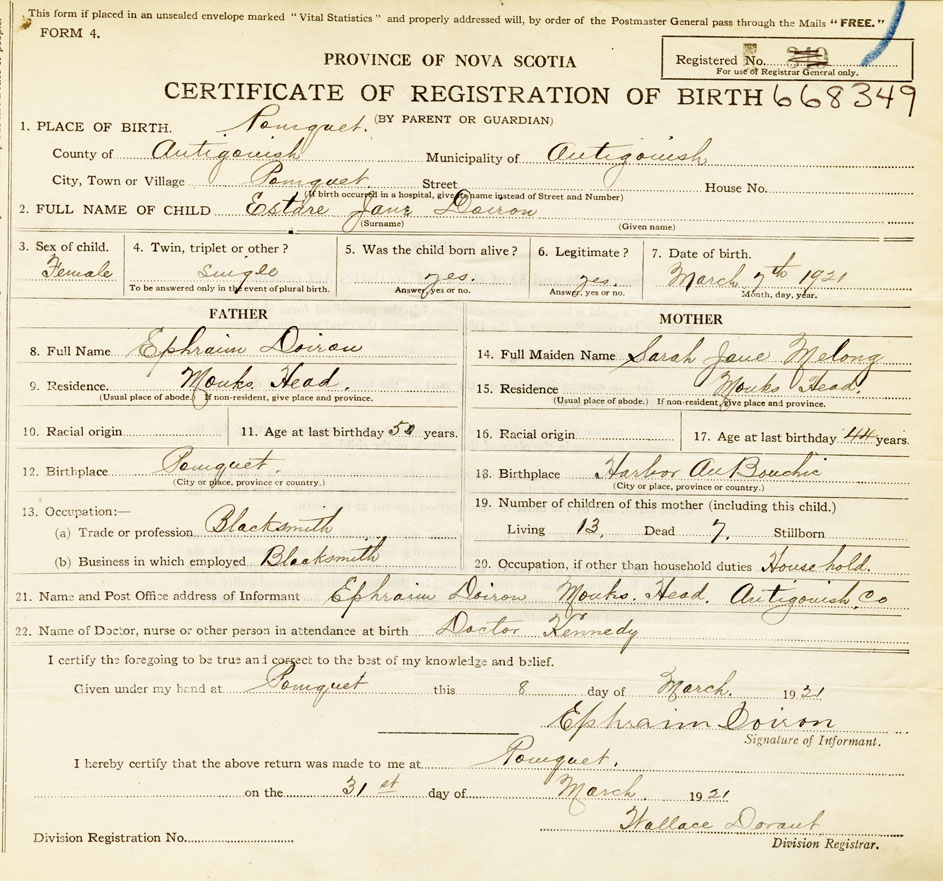 This form if placed in an unsealed envelope marked "Vital Statistics" and properly addressed will, by order of the Postmaster General pass through the Mails "FREE."
FORM 4.
PROVINCE OF NOVA SCOTIA
Registered No. 349
For use of Registrar General only.
CERTIFICATE OF REGISTRATION OF BIRTH 668349
(BY PARENT OR GUARDIAN)
1. PLACE OF BIRTH. Pomquet.
County of Antigonish Municipality of Antigonish
City, Town or Village Pomquet Street House No.
(If birth occurred in a hospital, give its name instead of Street and Number)
2. FULL NAME OF CHILD Estare Jane Doiron
(Surname) (Given name)
3. Sex of child. 4. Twin, triplet or other? 5. Was the child born alive? 6. Legitimate? 7. Date of birth.
Female single yes. yes. March 7th 1921
To be answered only in the event of plural birth. Answer, yes or no. Answer, yes or no. Month, day, year.
FATHER MOTHER
8. Full Name Ephraim Doiron 14. Full Maiden Name Sarah Jane Melong
9. Residence. Monks Head. 15. Residence Monks Head.
(Usual place of abode.) If non-resident, give place and province. (Usual place of abode.) If non-resident, give place and province.
10. Racial origin 11. Age at last birthday years. 16. Racial origin 17. Age at last birthday 44 years.
12. Birthplace Pomquet. 18. Birthplace Harbor Au Bouchie
(City or place, province or country.) (City or place, province or country.)
13. Occupation:— 19. Number of children of this mother (including this child.)
(a) Trade or profession Blacksmith Living 13, Dead 7, Stillborn
(b) Business in which employed Blacksmith 20. Occupation, if other than household duties Household.
21. Name and Post Office address of Informant Ephraim Doiron Monks. Head. Antigonish, Co
22. Name of Doctor, nurse or other person in attendance at birth Doctor Kennedy
I certify the foregoing to be true and correct to the best of my knowledge and belief.
Given under my hand at Pomquet this 8 day of March. 1921
Ephraim Doiron
Signature of Informant.
I hereby certify that the above return was made to me at Pomquet.
on the 31st day of March 1921
Wallace Dorant
Division Registration No. Division Registrar.